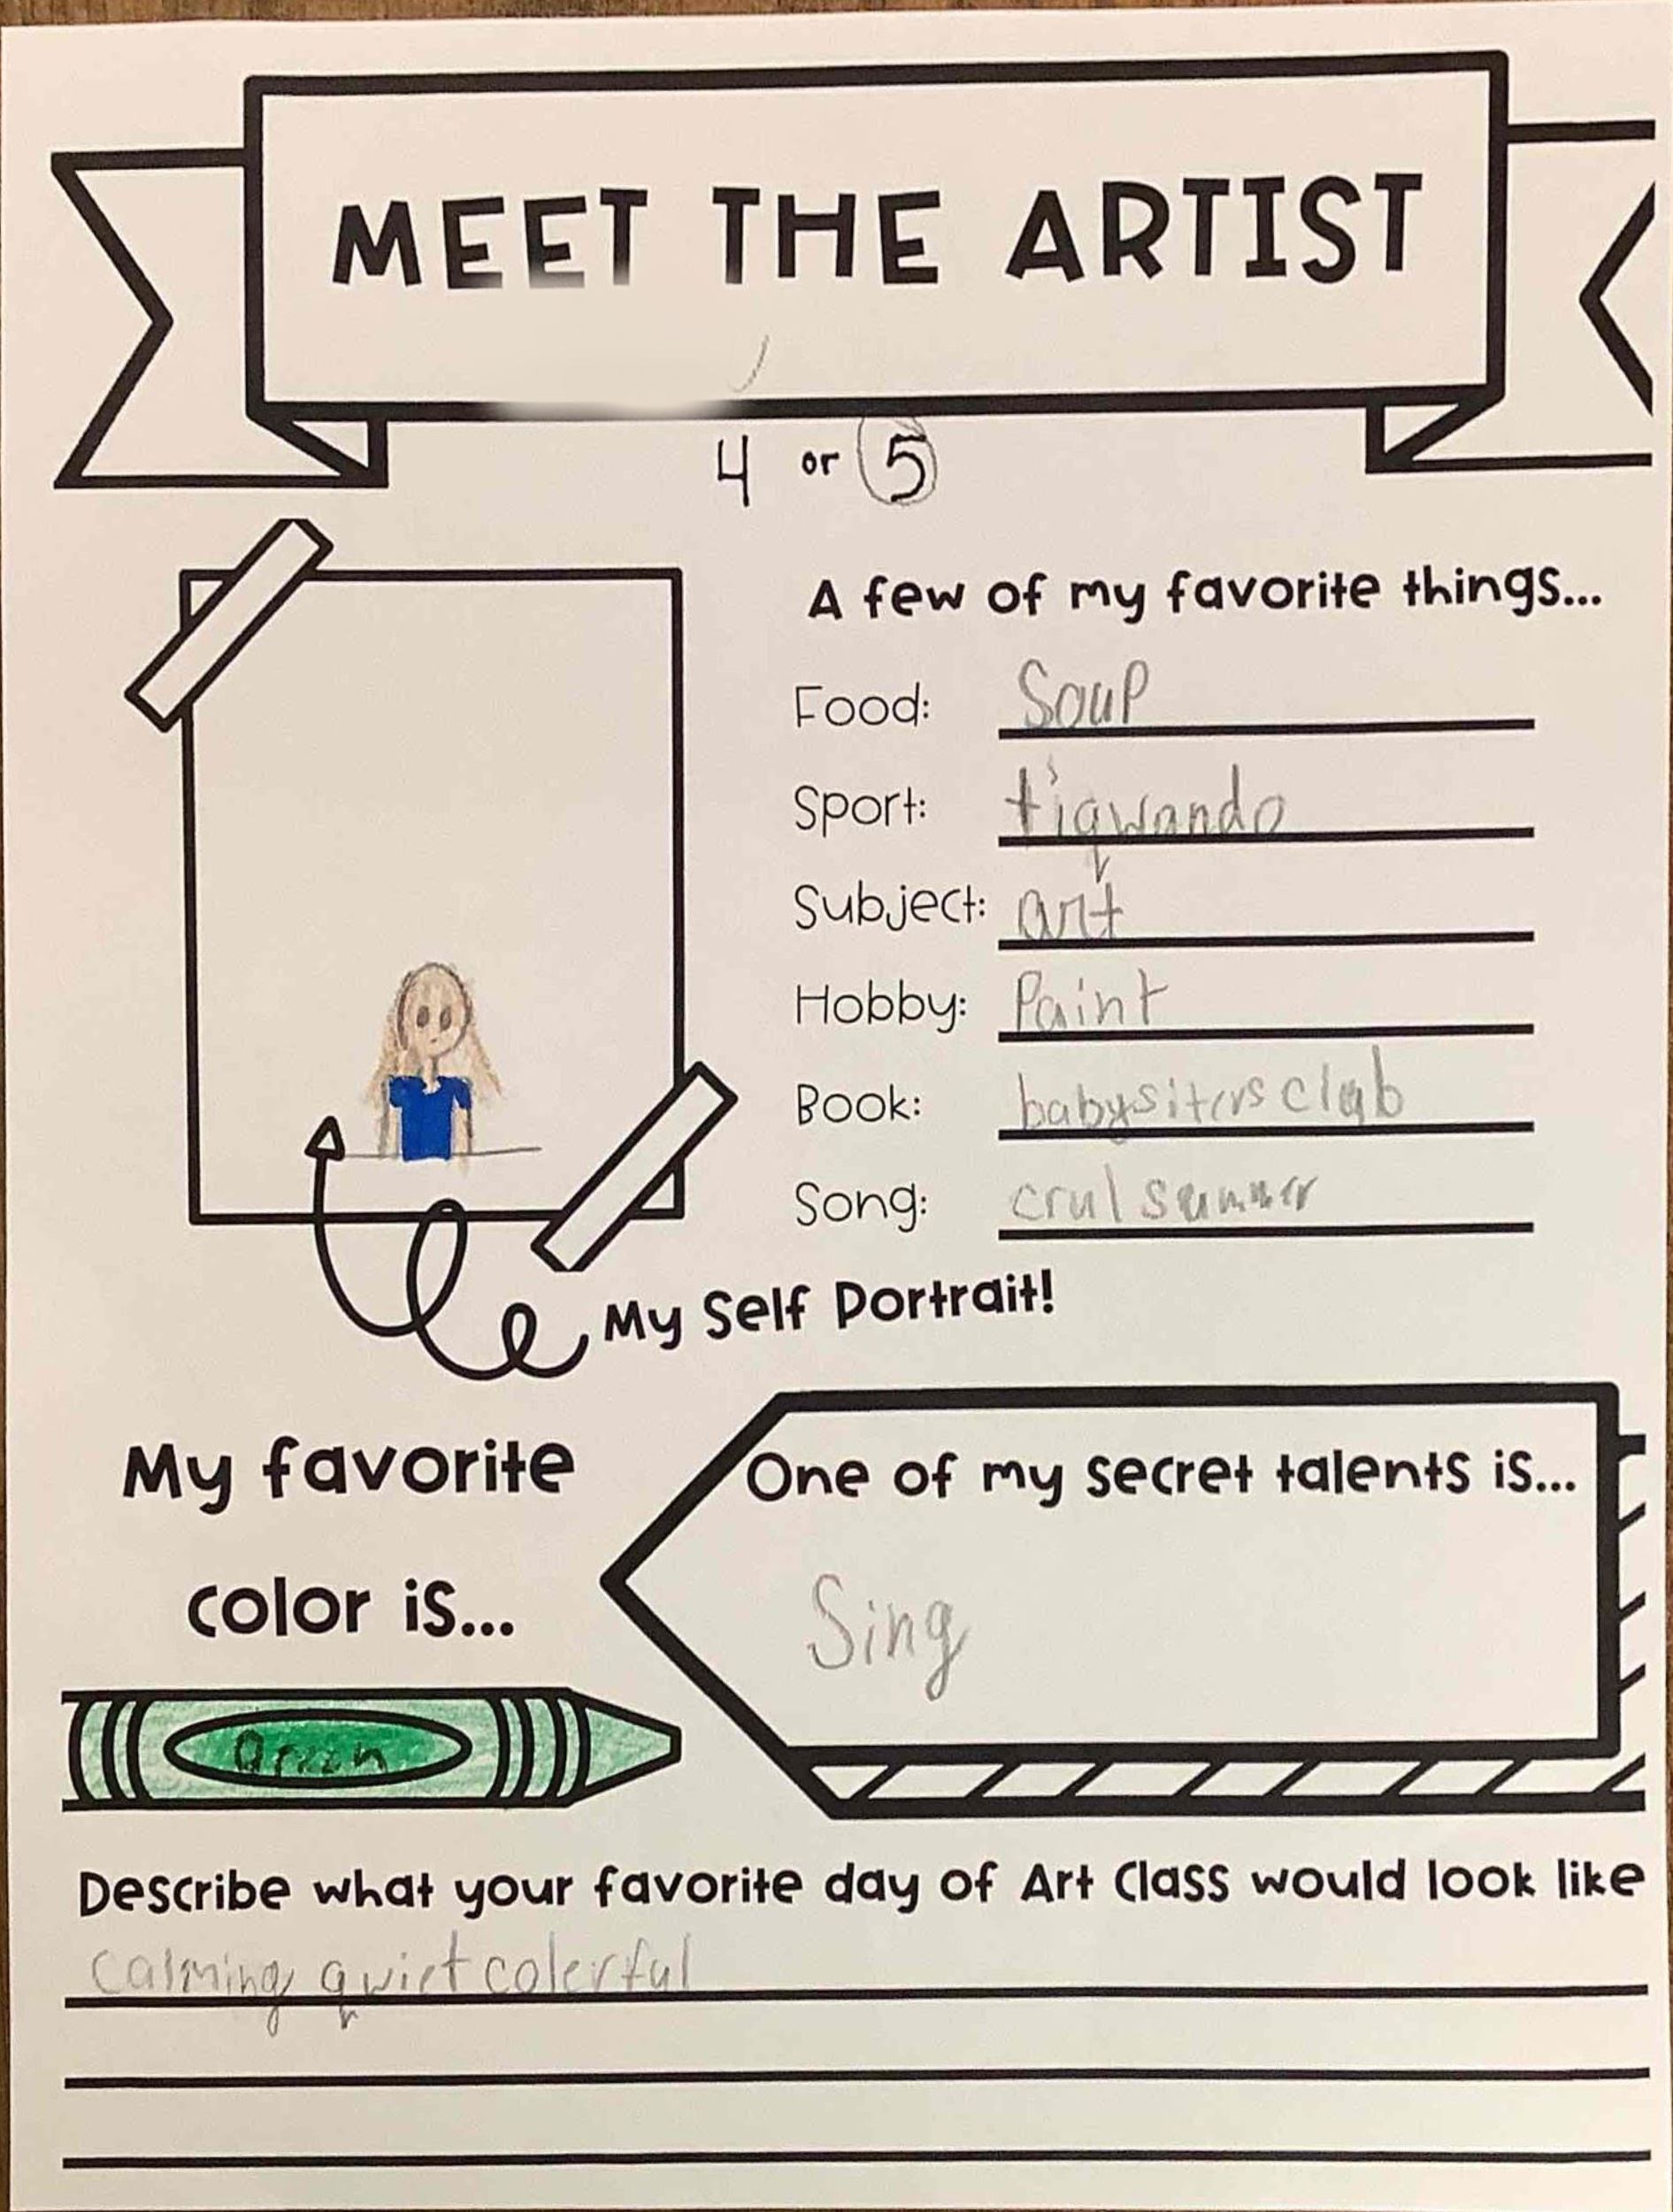 MEET THE ARTIST
4 or 5
A few of my favorite things...
Food: Soup
Sport: tiqwando
Subject: art
Hobby: Paint
Book: babysiters club
Song: crul summer
My Self Portrait!
My favorite
color is...
Green
One of my secret talents is...
Sing
Describe what your favorite day of Art Class would look like
calming qwiet colerful